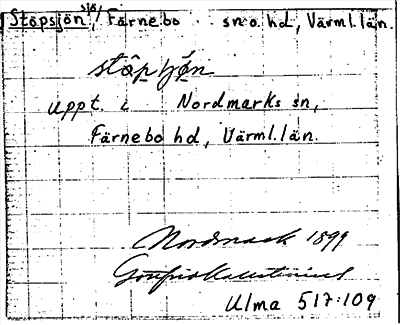 Stöpsjön, sjö, Färnebo sn o. hd, Värml. län.
stöpsjön
uppt. i Nordmarks sn,
Färnebo hd, Värml. län.
Nordmark 1899
Gottfrid Kallstenius
Ulma 517:109